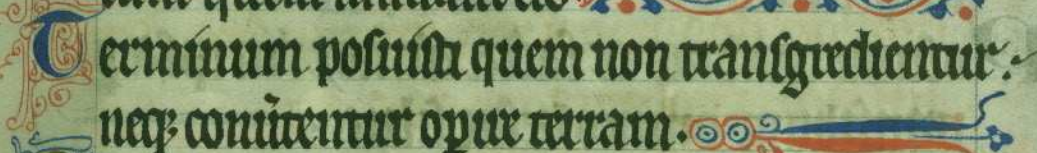 Terminum posuisti quem non transgredientur:
neq; conũtentur opire terram.